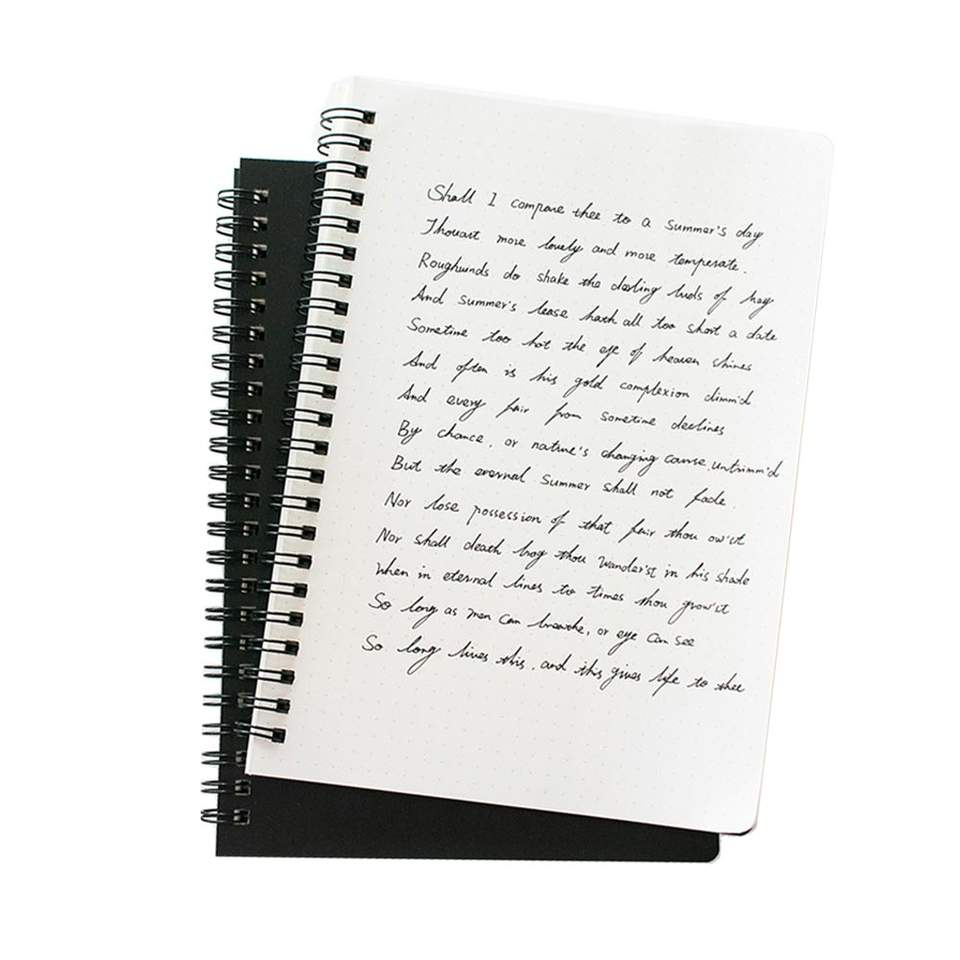 Shall I compare thee to a summer's day
Thouart more lovely and more temperate.
Roughwinds do shake the darling buds of may
And summer's lease hath all too short a date
Sometime too hot the eye of heaven shines
And often is his gold complexion dimm'd
And every fair from sometime declines
By chance, or nature's changing course, untrimm'd
But the eternal Summer shall not fade.
Nor lose possession of that fair thou ow'st
Nor shall death brog thou wander'st in his shade
When in eternal lines to times thou grow'st
So long as men can breathe, or eye can see
So long lives this, and this gives life to thee